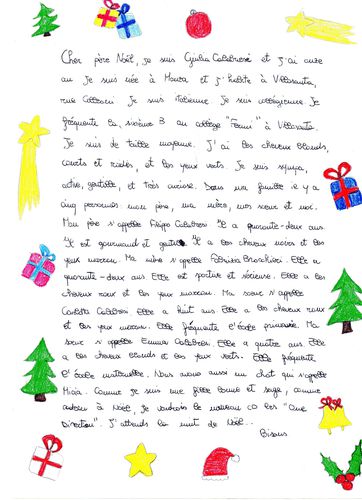 Cher père Noël, je suis Giulia Calabresi et j'ai onze
an Je suis née à Monza et j'habite à Villasanta,
rue Je suis italienne Je suis collégienne Je
fréquente la sixième B au collège "Fermi" à Villasanta.
Je suis de taille moyenne. J'ai les cheveux blonds,
courts et raides, et les yeux verts. Je suis sympa,
active, gentille, et très curieuse. Dans ma famille il y a
cinq personnes mon père, ma mère, mes sœurs et moi.
Mon père s'appelle Filippo Calabresi Il a quarante-deux ans.
Il est gourmand et gentil. Il a les cheveux noirs et les
yeux marron. Ma mère s'appelle Elle a
quarante-deux ans. Elle est sportive et sérieuse. Elle a les
cheveux roux et les yeux marron. Ma sœur s'appelle
Carlotta Calabresi Elle a huit ans Elle a les cheveux roux
et les yeux marron. Elle fréquente l'école primaire. Ma
sœur s'appelle Emma Calabresi. Elle a quatre ans. Elle
a les cheveux blonds et les yeux verts. Elle fréquente
l'école maternelle. Nous avons aussi un chat qui s'appelle
Comme je suis une fille bonne et sage, comme
cadeau à Noël, je voudrais le nouveau CD les "One
Direction". J'attends la nuit de Noël.
Bisous